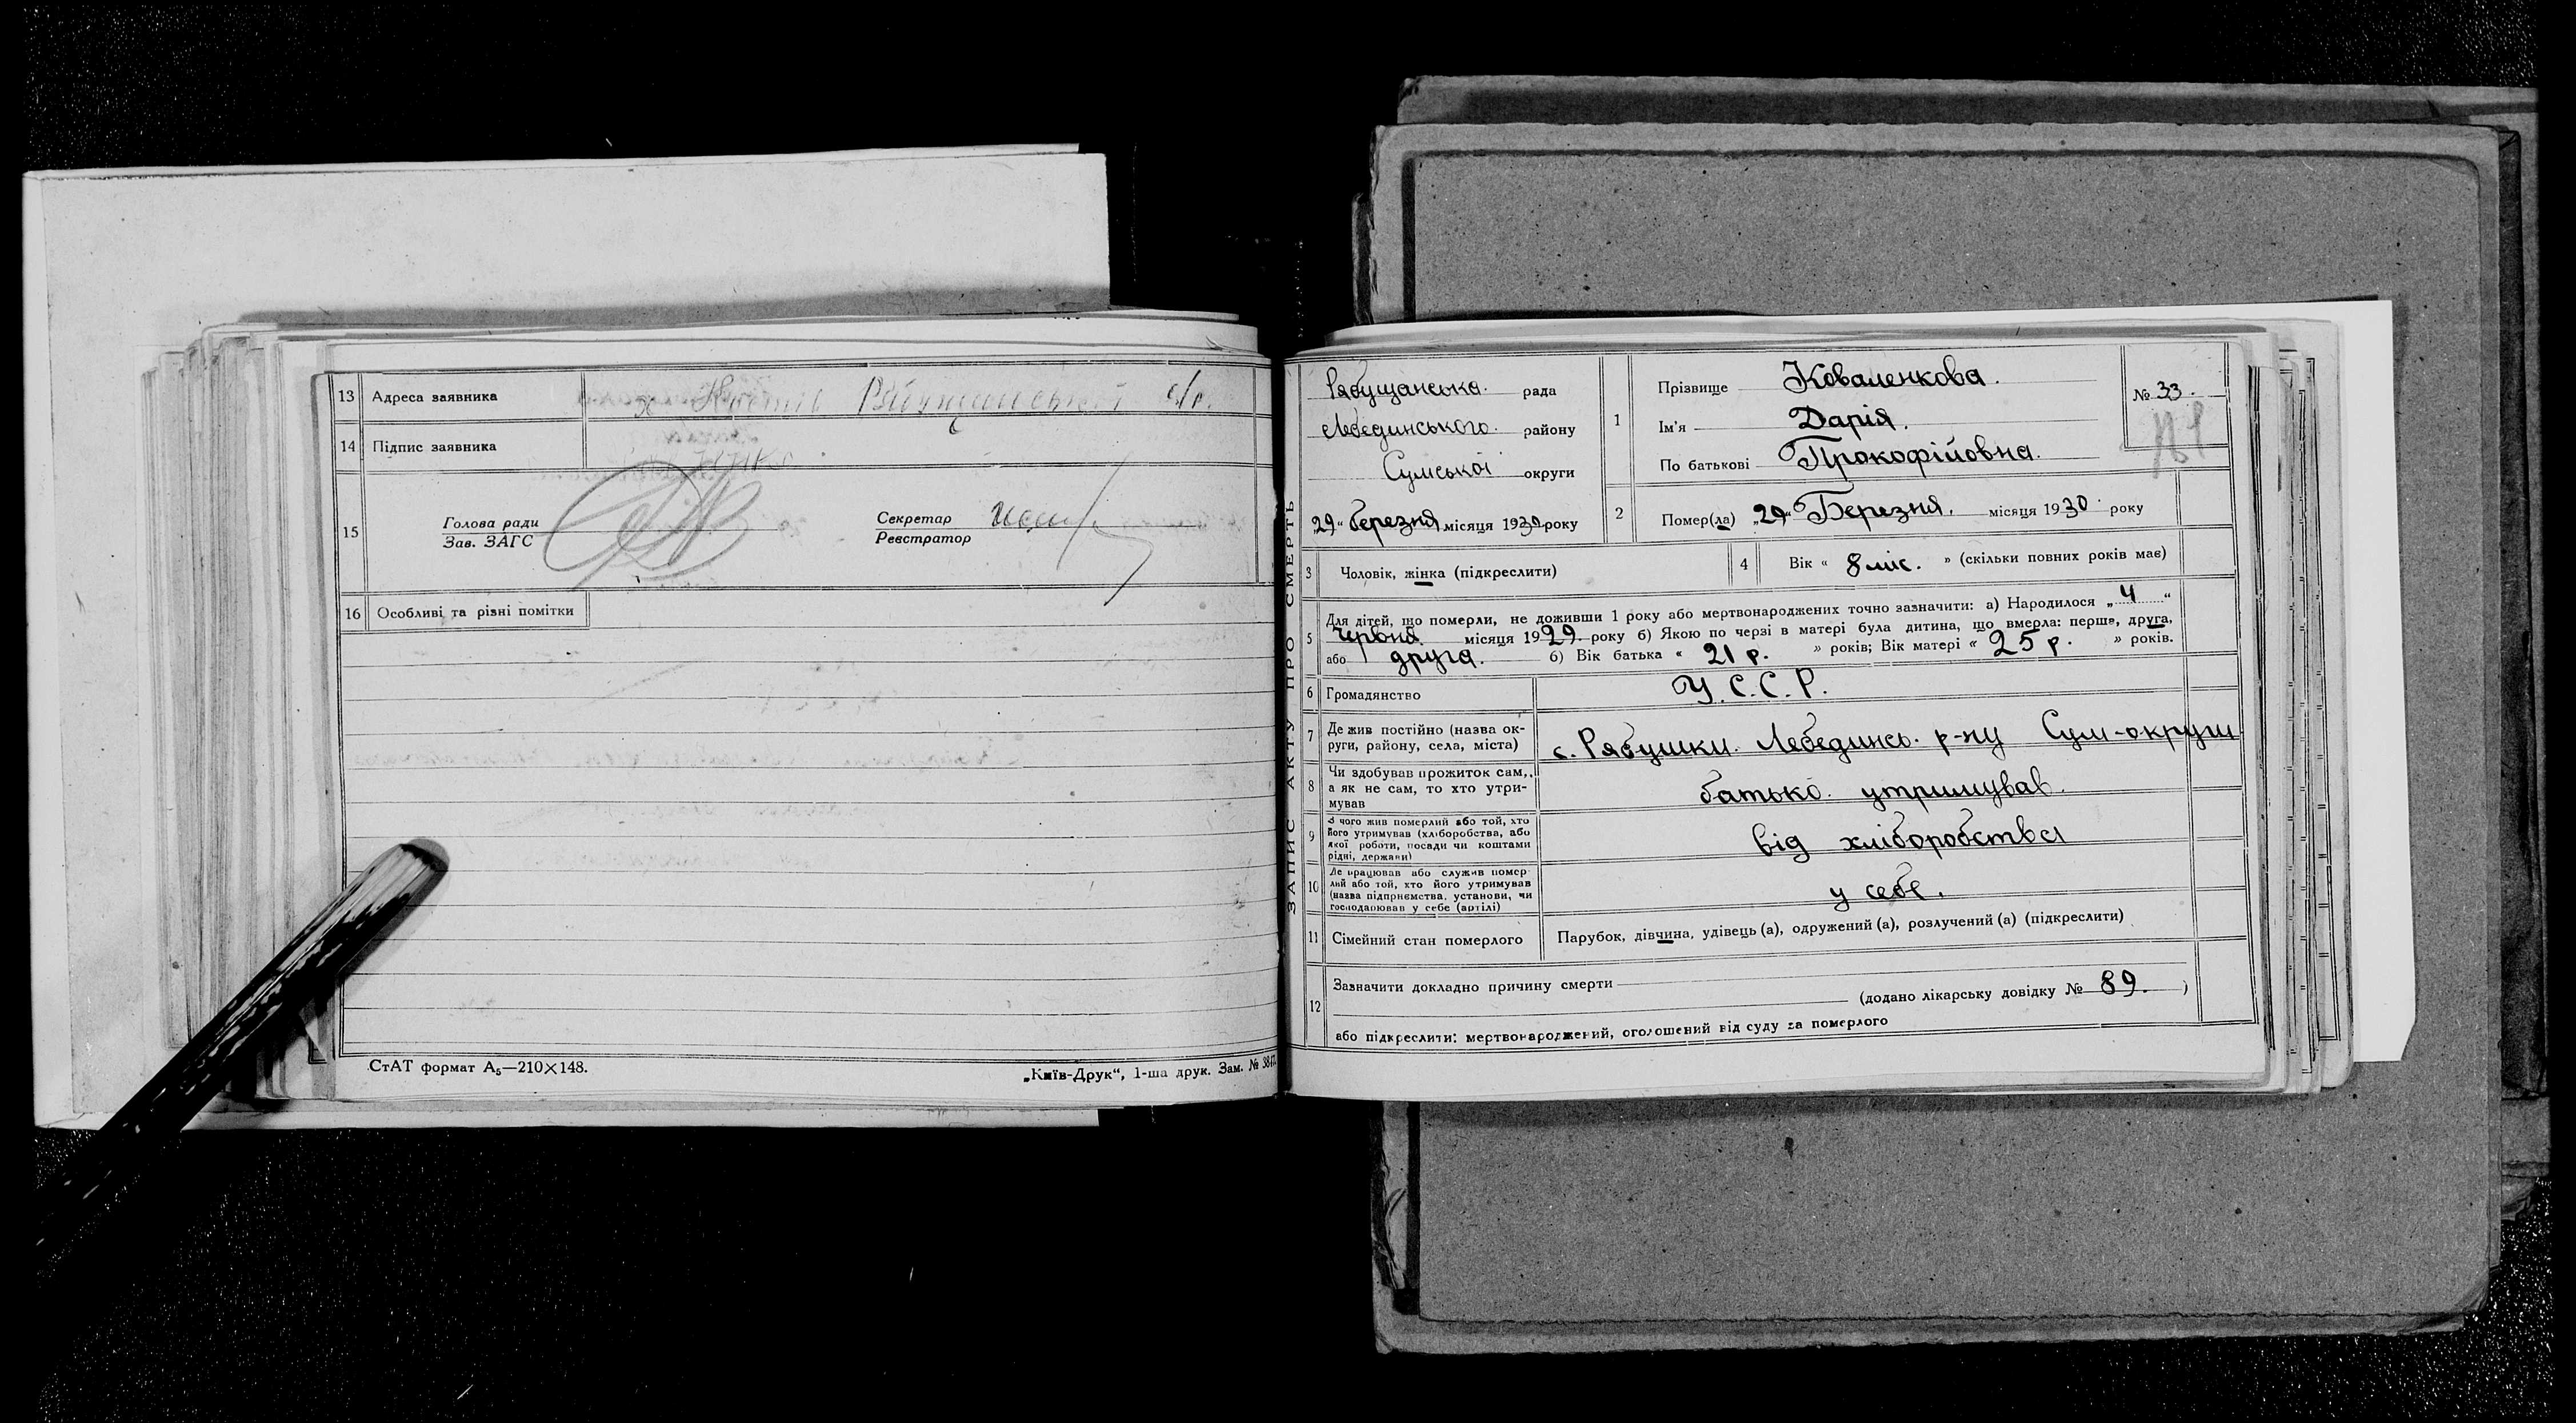 13 Адреса заявника
14 Підпис заявника
15 Голова ради
Зав. ЗАГС
Секретар
Реєстратор
16 Особливі та різні помітки
СтАТ формат А5—210×148.
„Київ-Друк“, 1-ша друк. Зам. №
ЗАПИС АКТУ ПРО СМЕРТЬ
Рябущанська рада
Лебединського району
Сумської округи
„29“ березня місяця 1930 року
1 Прізвище Коваленкова.
Ім'я Дарія.
По батькові Прокофійовна.
№ 33.
2 Помер(ла) „29“ Березня. місяця 1930 року
3 Чоловік, жінка (підкреслити)
4 Вік « 8 міс. » (скільки повних років має)
5 Для дітей, що померли, не доживши 1 року або мертвонароджених точно зазначити: а) Народилося „4“
Червня місяця 1929. року б) Якою по черзі в матері була дитина, що вмерла: перша, друга,
або друга. б) Вік батька « 21 р. » років; Вік матері « 25 р. » років.
6 Громадянство У.С.С.Р.
7 Де жив постійно (назва ок-
руги, району, села, міста) с. Рябушки. Лебединсь. р-ну Сум-округи
8 Чи здобував прожиток сам,
а як не сам, то хто утри-
мував батько утримував
9 З чого жив померлий або той, хто
його утримував (хліборобства, або
якої роботи, посади чи коштами
рідні, держави) від хліборобства
10 Де працював або служив помер-
лий або той, хто його утримував
(назва підприємства, установи, чи
господарював у себе (артілі) у себе.
11 Сімейний стан померлого Парубок, дівчина, удівець (а), одружений (а), розлучений (а) (підкреслити)
12 Зазначити докладно причину смерти
(додано лікарську довідку № 89. )
або підкреслити: мертвонароджений, оголошений від суду за померлого